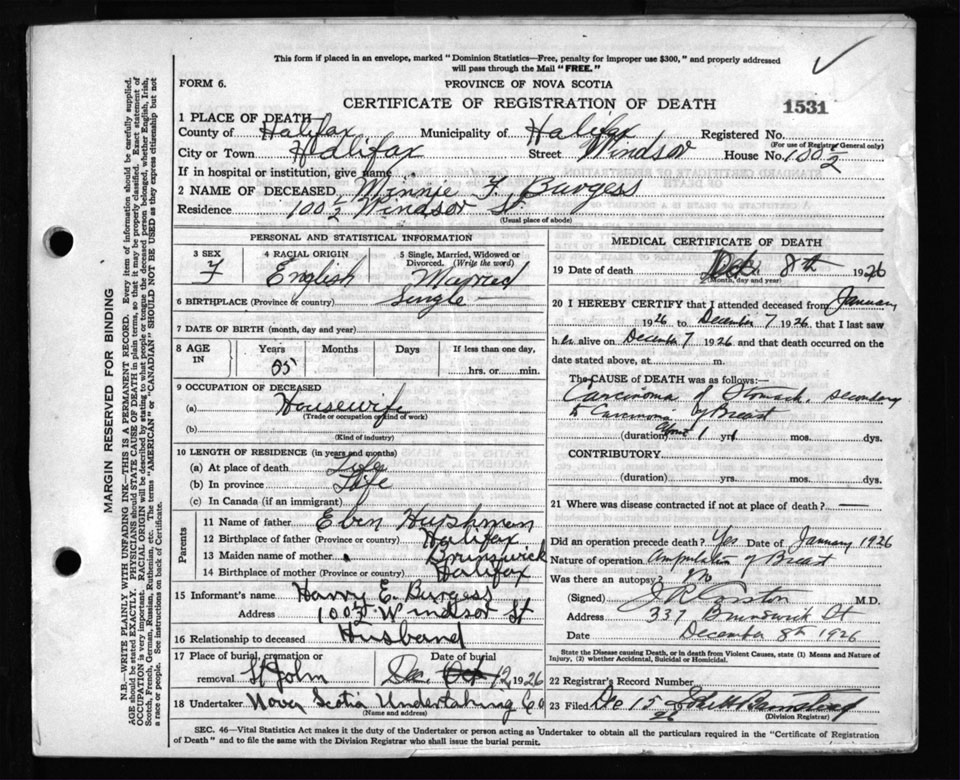 This form if placed in an envelope, marked "Dominion Statistics—Free, penalty for improper use $300," and properly addressed
will pass through the Mail "FREE."
FORM 6.
PROVINCE OF NOVA SCOTIA
CERTIFICATE OF REGISTRATION OF DEATH
1531
1 PLACE OF DEATH
County of Halifax Municipality of Halifax Registered No.
(For use of Registrar General only)
City or Town Halifax Street Windsor House No. 100 1/2
If in hospital or institution, give name
2 NAME OF DECEASED, Minnie F. Burgess
Residence 100 1/2 Windsor St.
(Usual place of abode)
PERSONAL AND STATISTICAL INFORMATION
3 SEX F
4 RACIAL ORIGIN English
5 Single, Married, Widowed or Divorced. (Write the word) Married
6 BIRTHPLACE (Province or country) Single
7 DATE OF BIRTH (month, day and year)
8 AGE IN Years Months Days If less than one day,
hrs. or min.
9 OCCUPATION OF DECEASED
(a) Housewife
(Trade or occupation or kind of work)
(b)
(Kind of industry)
10 LENGTH OF RESIDENCE (in years and months)
(a) At place of death Life
(b) In province Life
(c) In Canada (if an immigrant)
Parents
11 Name of father Eben Hushman
12 Birthplace of father (Province or country) Halifax
13 Maiden name of mother Brunswick
14 Birthplace of mother (Province or country) Halifax
15 Informant's name Harry E. Burgess
Address 100 1/2 Windsor St
16 Relationship to deceased Husband
17 Place of burial, cremation or removal St John
Date of burial Dec Oct 12, 1926
18 Undertaker Nova Scotia Undertaking Co
(Name and address)
MEDICAL CERTIFICATE OF DEATH
19 Date of death Dec. 8th 1926
(Month, day and year)
20 I HEREBY CERTIFY that I attended deceased from January
1926 to December 7 1926, that I last saw
her alive on December 7 1926 and that death occurred on the
date stated above, at m.
The CAUSE OF DEATH was as follows:—
Carcinoma of Stomach, secondary
to Carcinoma of Breast
(duration) 1 yrs mos. dys.
CONTRIBUTORY.
(duration) yrs. mos. dys.
21 Where was disease contracted if not at place of death? —
Did an operation precede death? Yes Date of January 1926
Nature of operation Amputation of Breast
Was there an autopsy? No
(Signed) M.D.
Address 339 Brunswick St
Date December 8th 1926
State the Disease causing Death, or in death from Violent Causes, state (1) Means and Nature of
Injury, (2) whether Accidental, Suicidal or Homicidal.
22 Registrar's Record Number
23 Filed De 15
(Division Registrar)
SEC. 46—Vital Statistics Act makes it the duty of the Undertaker or person acting as Undertaker to obtain all the particulars required in the "Certificate of Registration
of Death" and to file the same with the Division Registrar who shall issue the burial permit.
MARGIN RESERVED FOR BINDING
N.B.—WRITE PLAINLY WITH UNFADING INK—THIS IS A PERMANENT RECORD. Every item of information should be carefully supplied.
AGE should be stated EXACTLY. PHYSICIANS should STATE CAUSE OF DEATH in plain terms, so that it may be properly classified. Exact statement of
OCCUPATION is very important. RACIAL ORIGIN will be described by stating to what people or tongue the deceased person belonged, whether English, Irish,
Scotch, French, German, Russian, Ruthenian, etc. The terms "AMERICAN" or "CANADIAN" SHOULD NOT BE USED as they express citizenship but not
a race or people. See instructions on back of Certificate.